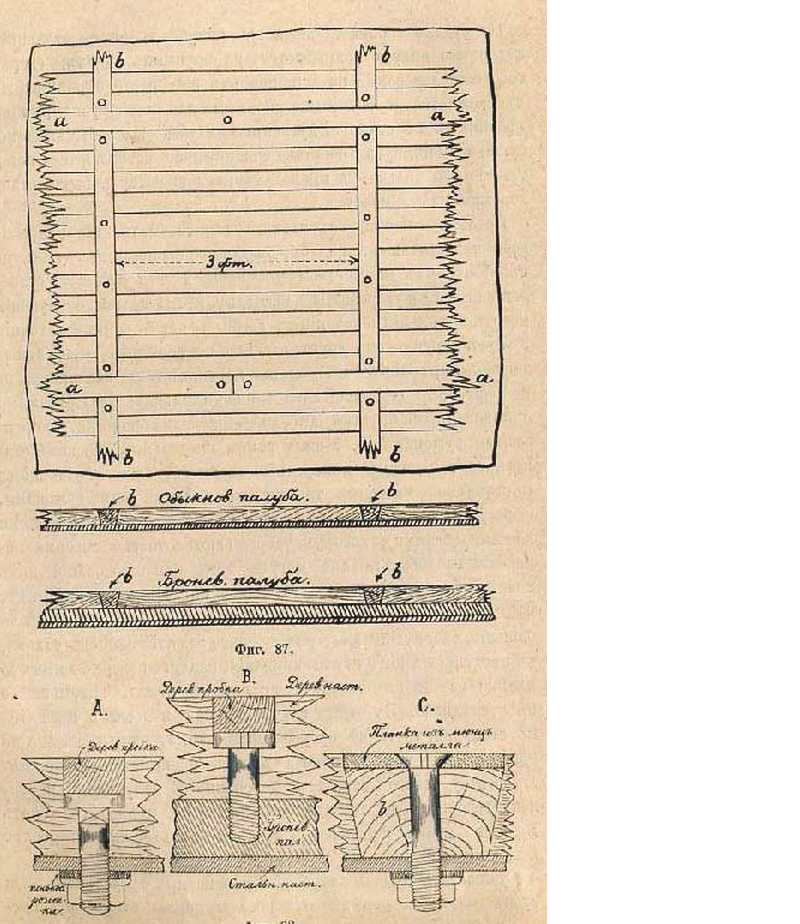 b b
a a
3 фт.
a a
b b
b Обыкнов. палуба. b
b Бронев. палуба. b
Фиг. 87.
A. B. C.
Дерев пробка Дерев наст.
Планка изъ мюнцъ
металла
Дерев пробка
b
Бронев
пал
Стальн. наст.